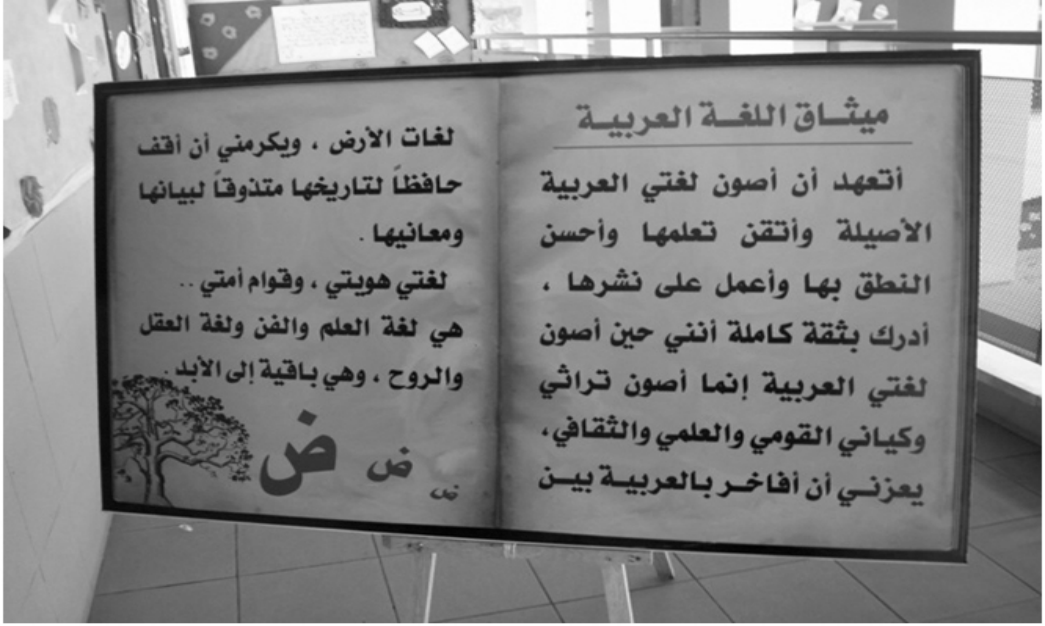 ميثاق اللغة العربية
أتعهد أن أصون لغتي العربية
الأصيلة وأتقن تعلمها وأحسن
النطق بها وأعمل على نشرها ،
أدرك بثقة كاملة أنني حين أصون
لغتي العربية إنما أصون تراثي
وكياني القومي والعلمي والثقافي،
يعزني أن أفاخر بالعربية بين
لغات الأرض ، ويكرمني أن أقف
حافظاً لتاريخها متذوقاً لبيانها
ومعانيها .
لغتي هويتي ، وقوام أمتي ..
هي لغة العلم والفن ولغة العقل
والروح ، وهي باقية إلى الأبد .
ض ض ض